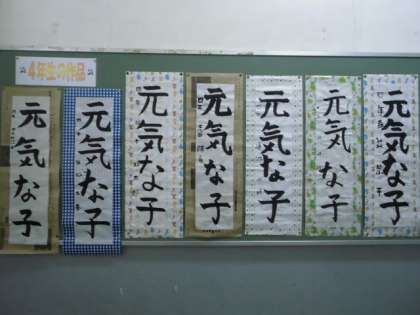 4年生の作品
元気な子
元気な子
元気な子
元気な子
元気な子
元気な子
元気な子